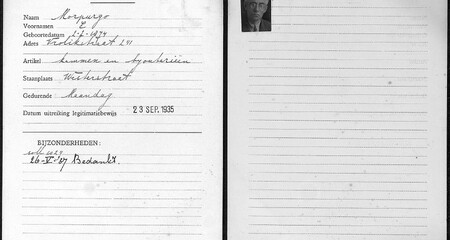 Naam Morpurgo
Voornamen E.
Geboortedatum 2-7-1874
Adres Vrolikstraat 291
Artikel kammen en bijouterieën
Staanplaats Waterstraat
Gedurende Maandag
Datum uitreiking legitimatiebewijs 23 SEP. 1935
BIJZONDERHEDEN:
26-V-'37 Bedankt.